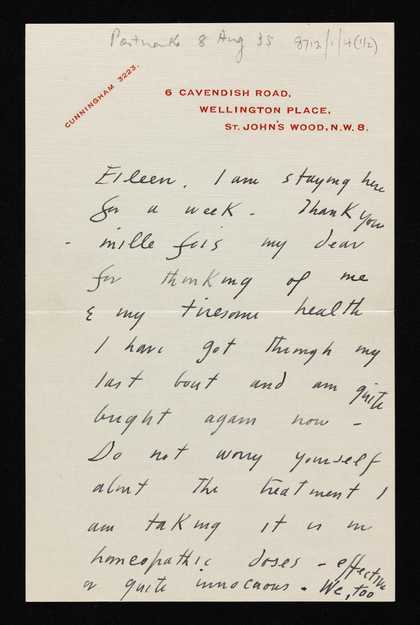 Postmark 8 Aug 35 8712/1/4(1/2)
CUNNINGHAM 3223.
6 CAVENDISH ROAD,
WELLINGTON PLACE,
ST. JOHN'S WOOD, N.W. 8.
Eileen. I am staying here
for a week - Thank you
- mille fois my dear
for thinking of me
& my tiresome health
I have got through my
last bout and am quite
bright again now -
Do not worry yourself
about the treatment I
am taking it is in
homeopathic doses - effective
or quite innocuous. We, too